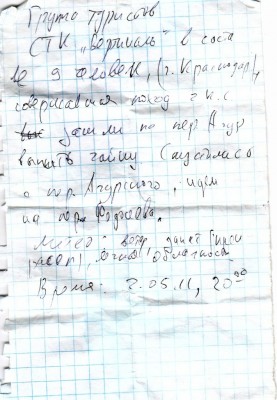 Группа туристов
СТК "Вертикаль" в соста
ве 9 человек, (г. Краснодар),
совершавшая поход 2 к.с
зашли на пер. Агур
выпить чайку. Спустились
с пер. Агурского, идем
на пер.
Метео: ветер,
облачность
Время. 2.05.11, 20⁰⁰